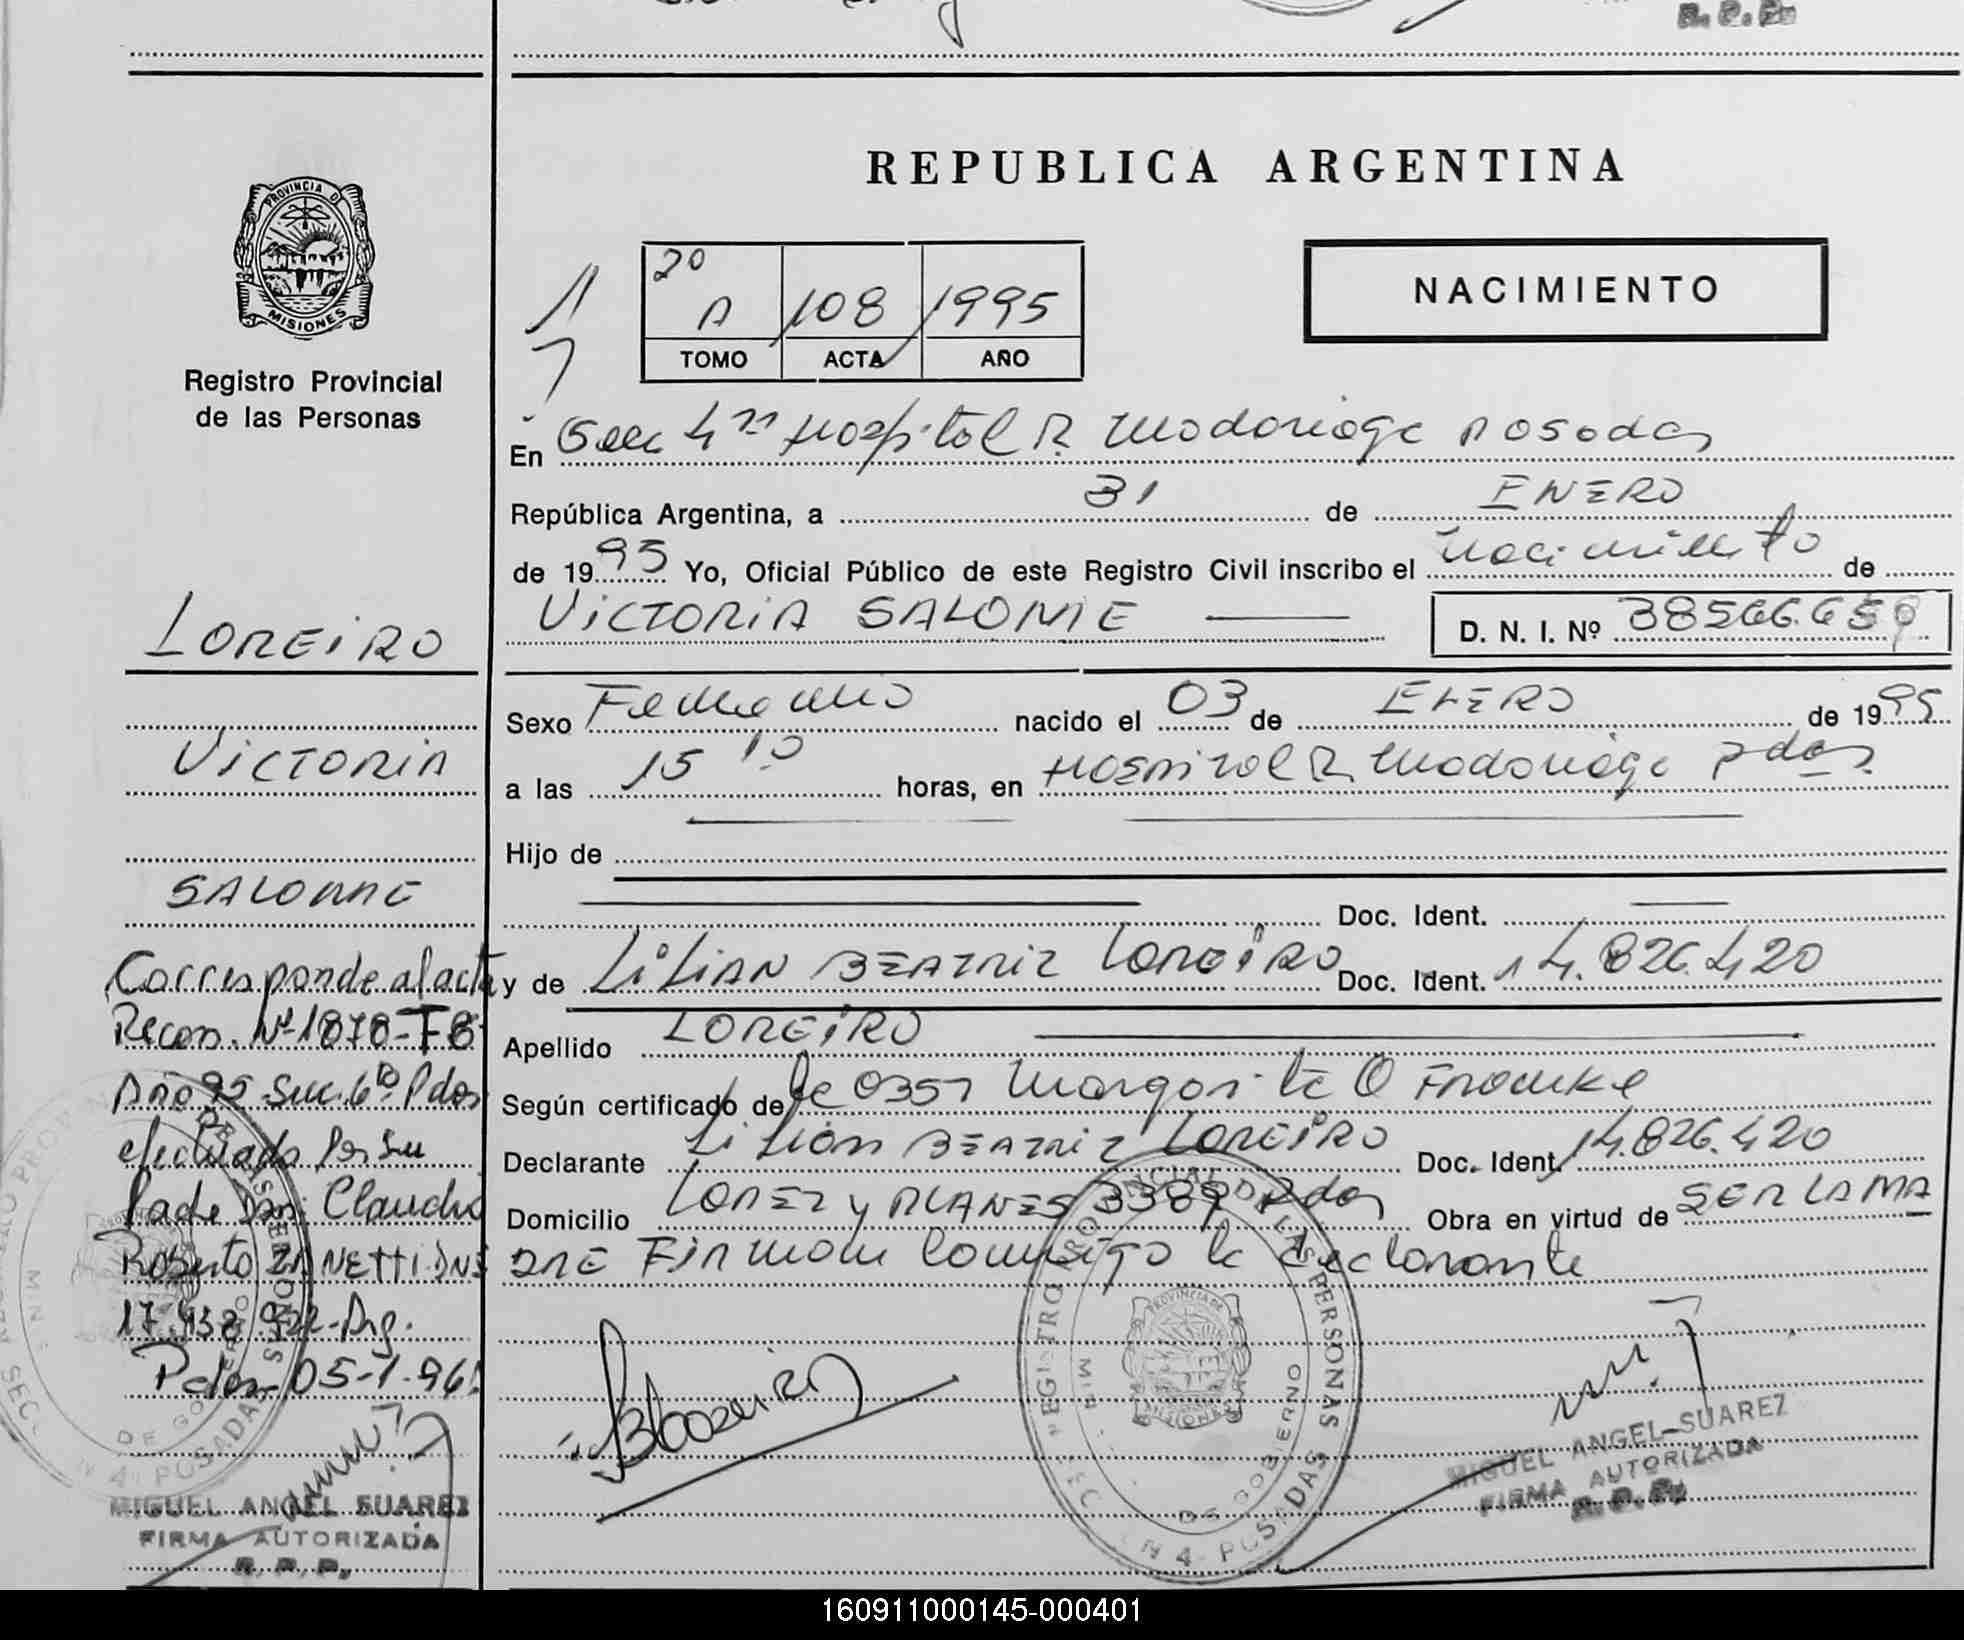 R. P. P.
REPUBLICA ARGENTINA
PROVINCIA DE
MISIONES
Registro Provincial
de las Personas
2º
A 108 1995
TOMO ACTA AÑO
NACIMIENTO
En Secc 4ta Hospital R. Madariaga Posadas
República Argentina, a 31 de ENERO
de 1995 Yo, Oficial Público de este Registro Civil inscribo el Nacimiento de
VICTORIA SALOME D. N. I. Nº 38566.659
LOREIRO
VICTORIA
SALOME
Sexo Femenino nacido el 03 de ENERO de 1995
a las 15 10 horas, en HOSPITAL R. Madariaga Pdas
Hijo de
Doc. Ident.
y de LILIAN BEATRIZ LOREIRO Doc. Ident. 14.826.420
Apellido LOREIRO
Según certificado de 0357 Margarita O Framke
Declarante Lilian BEATRIZ LOREIRO Doc. Ident. 14.826.420
Domicilio LOPEZ y PLANES 3389 Pdas Obra en virtud de SER LA MA
DRE Firmam conmigo la declarante
Corresponde al acta
Recon. Nº 1878-T8
Año 95 Sec. 6ta Pdas
efectuado por su
Padre Don Claudio
Roberto ZANETTI DNI
17.438.922-Arg.
Pdas 05-1-96
MIGUEL ANGEL SUAREZ
FIRMA AUTORIZADA
R. P. P.
REGISTRO PROVINCIAL DE LAS PERSONAS
DE GOBIERNO
SECCION 4 POSADAS
MIGUEL ANGEL SUAREZ
FIRMA AUTORIZADA
R. P. P.
160911000145-000401